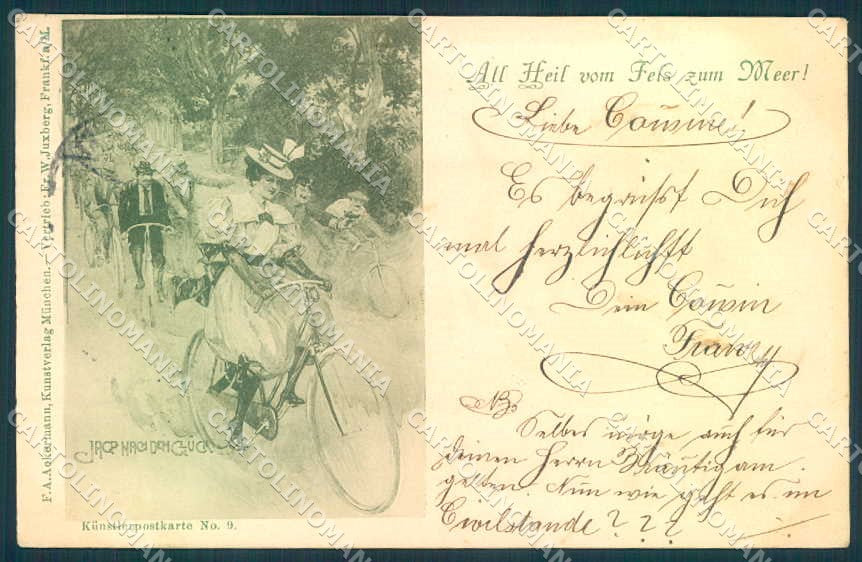 F.A.Ackermann, Kunstverlag München. — Vertrieb: Fr. W. Juxberg, Frankf. a/M.
JAGD NACH DEM GLÜCK
Künstlerpostkarte No. 9.
All Heil vom Fels zum Meer!
Liebe Cousine!
Es begrüsst Dich
mal herzlichst
Dein Cousin
Franz
NB.
Selbes möge auch für
deinen Herrn Bräutigam
gelten. Nun wie geht es im
Civilstande? ? ?
CARTOLINOMANIA